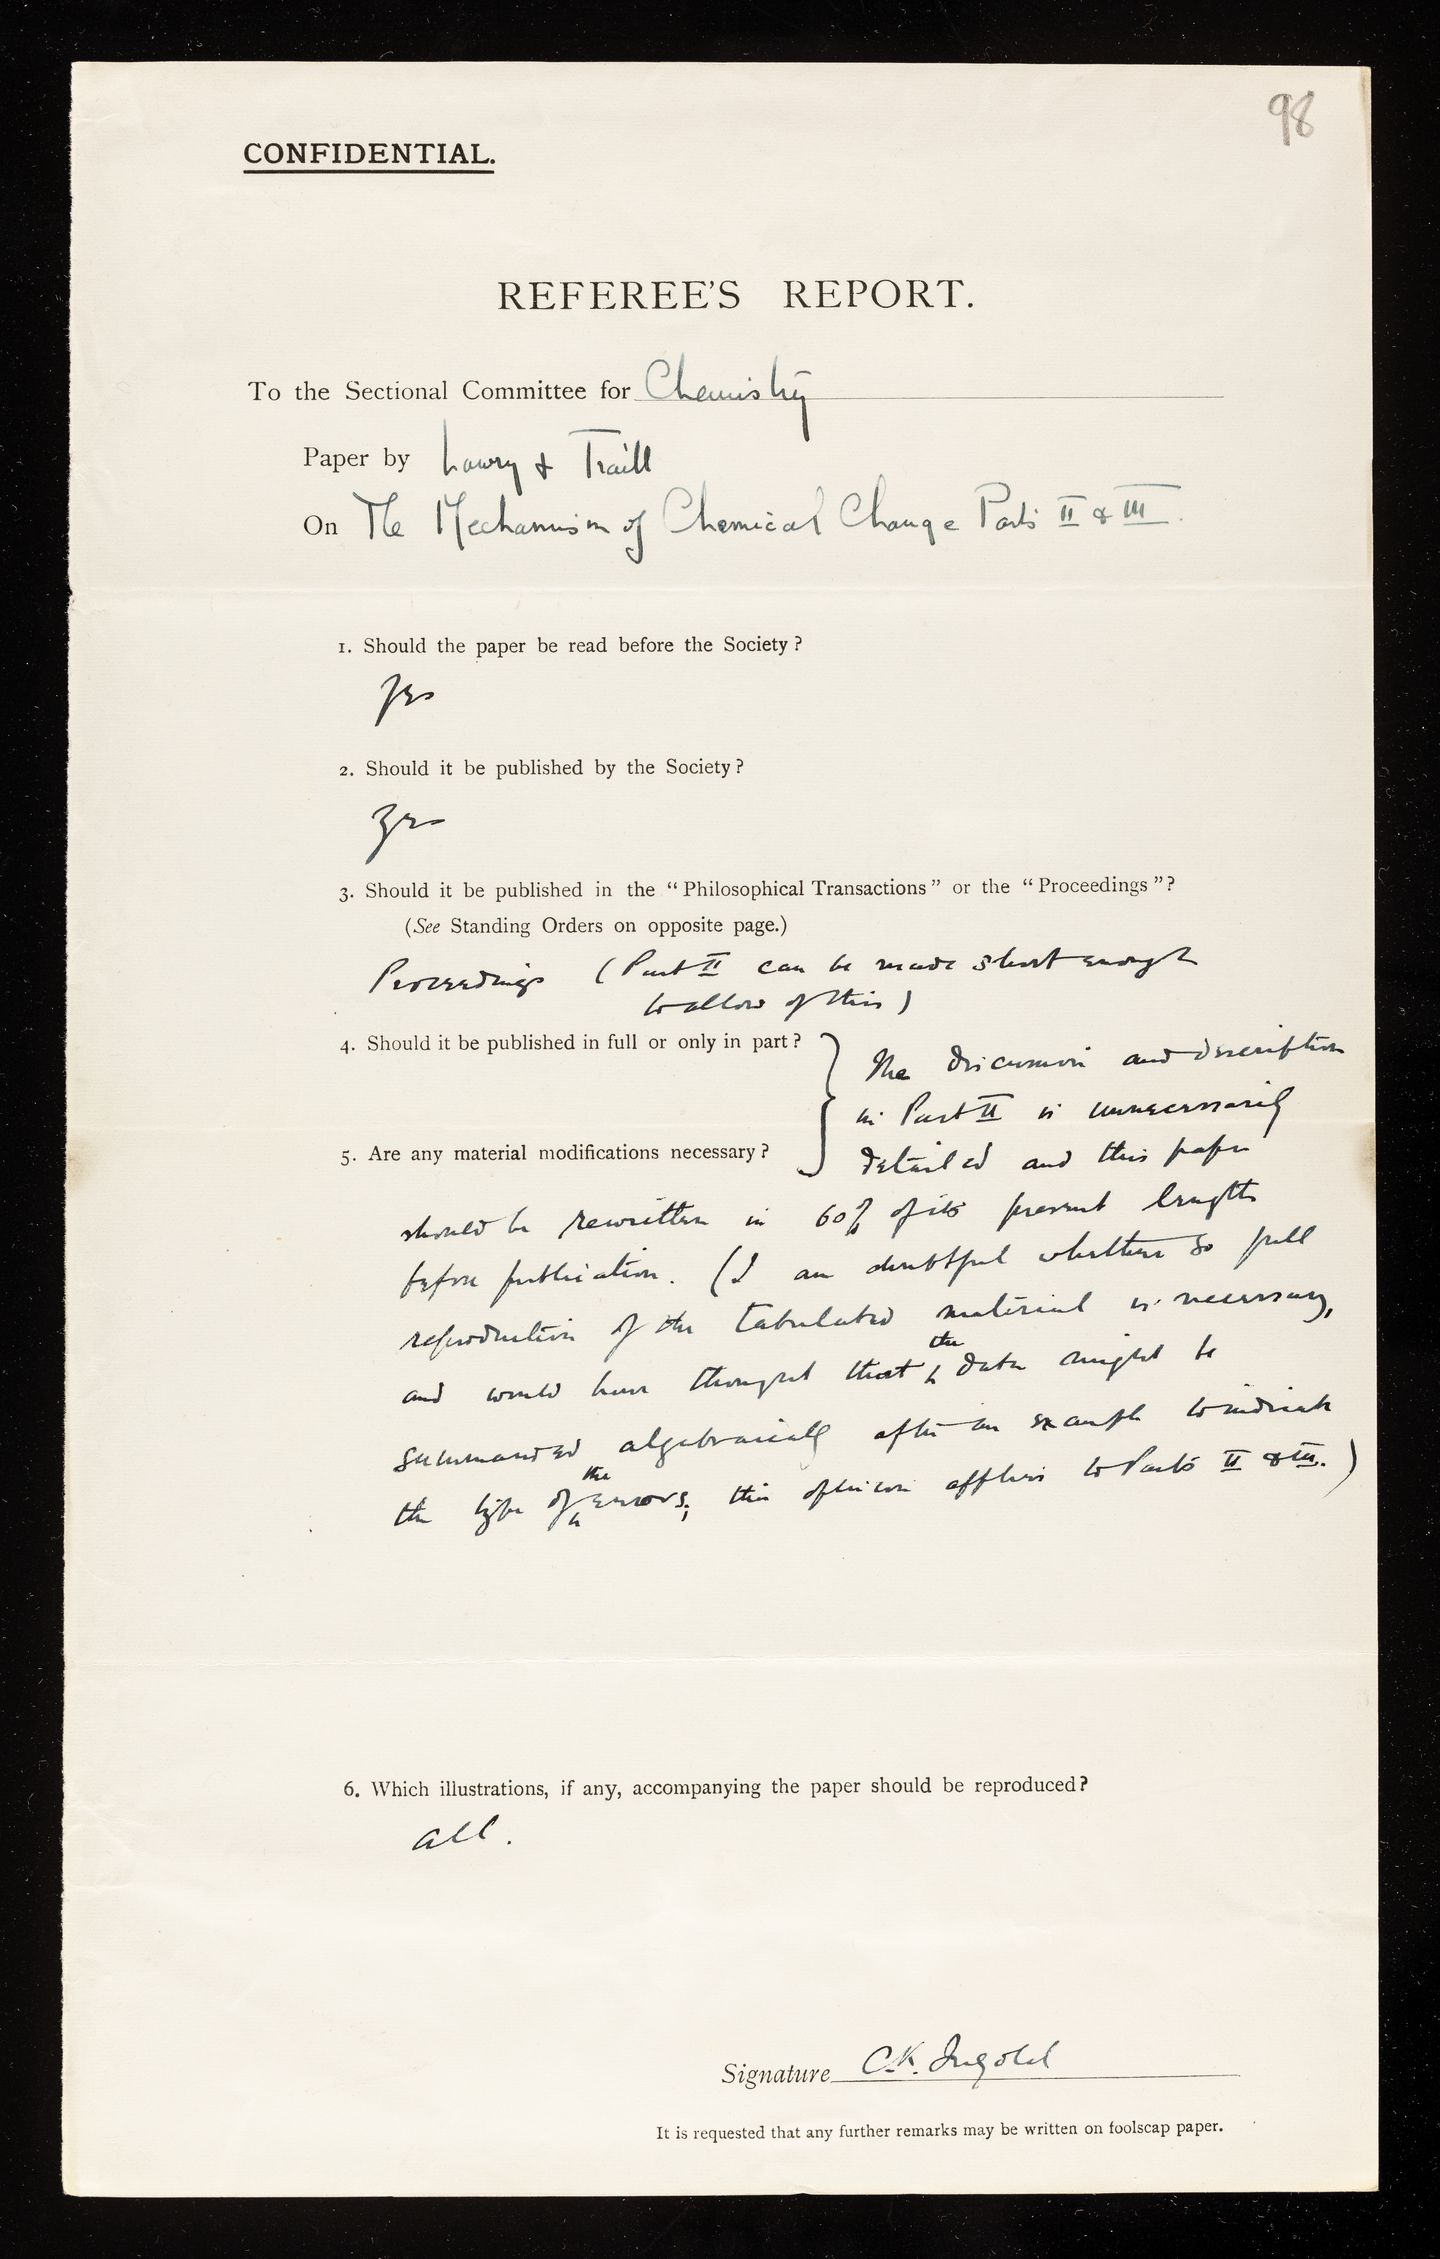 98
CONFIDENTIAL.
REFEREE'S REPORT.
To the Sectional Committee for Chemistry
Paper by Lowry & Traill
On The Mechanism of Chemical Change Parts II & III.
1. Should the paper be read before the Society?
yes
2. Should it be published by the Society?
yes
3. Should it be published in the "Philosophical Transactions" or the "Proceedings"?
(See Standing Orders on opposite page.)
Proceedings (Part II can be made short enough
to allow of this)
4. Should it be published in full or only in part?
5. Are any material modifications necessary?
The discussion and description
in Part II is unnecessarily
detailed and this paper
should be rewritten in 60% of its present length
before publication. (I am doubtful whether so full
reproduction of the tabulated material is necessary,
and would have thought that the data might be
summarised algebraically after an example to indicate
the type of the errors; this opinion applies to Parts II & III.)
6. Which illustrations, if any, accompanying the paper should be reproduced?
all.
Signature C.K. Ingold
It is requested that any further remarks may be written on foolscap paper.